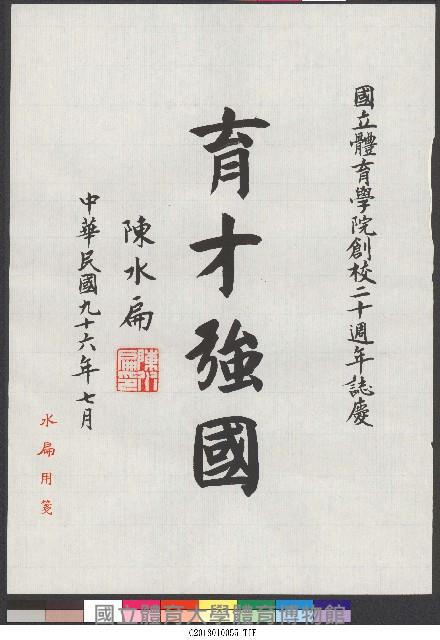 國立體育學院創校二十週年誌慶
育才強國
陳水扁
中華民國九十六年七月
水扁用箋
國立體育大學體育博物館
C2013010055.TIF